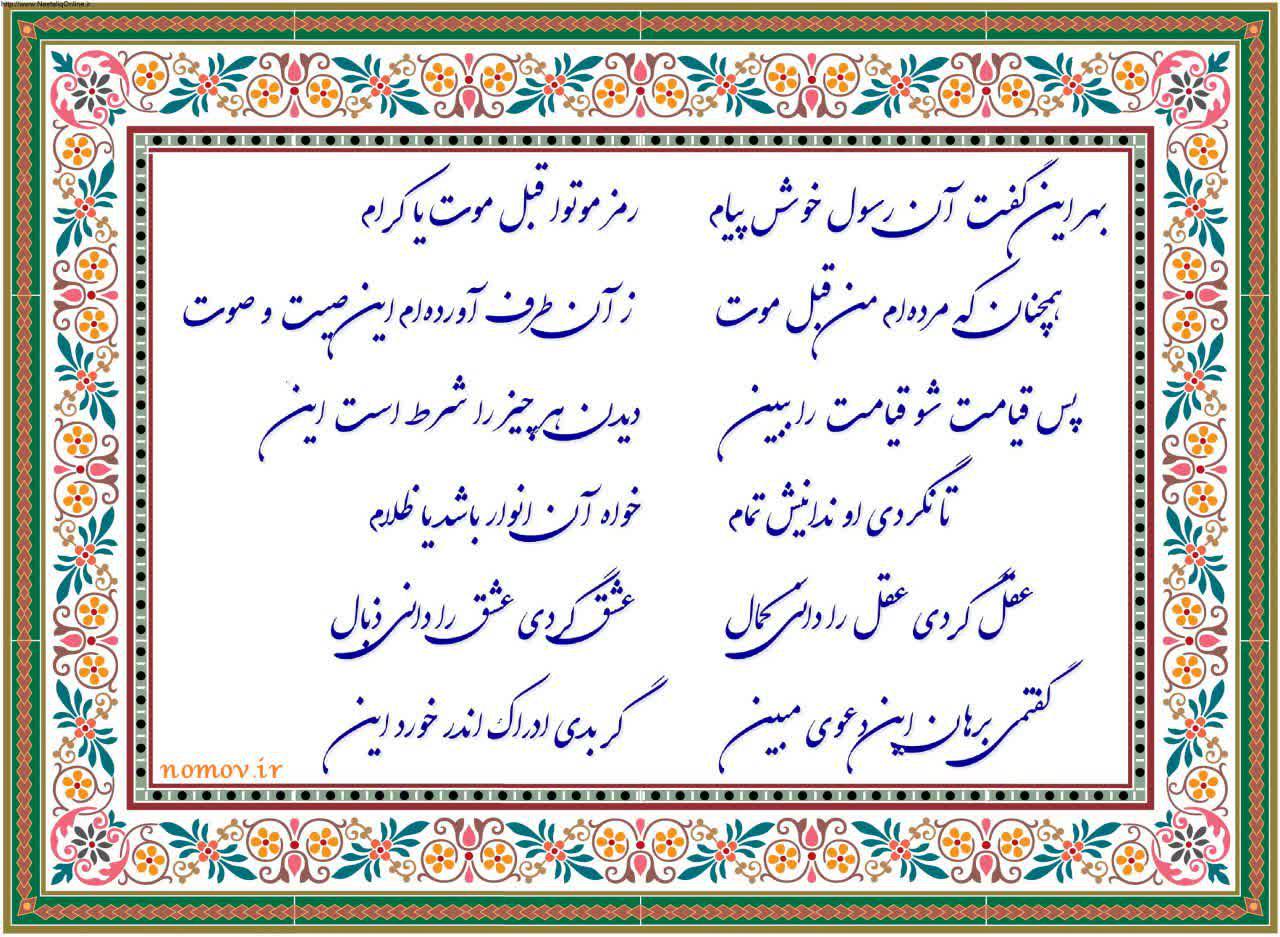 http://www.NastaliqOnline.ir
بهر این گفت آن رسول خوش پیام رمز موتوا قبل موت یا کرام
همچنان که مرده‌ام من قبل موت ز آن طرف آورده‌ام این صیت و صوت
پس قیامت شو قیامت را ببین دیدن هر چیز را شرط است این
تا نگردی او ندانیش تمام خواه آن انوار باشد یا ظلام
عقل گردی عقل را دانی کمال عشق گردی عشق را دانی ذبال
گفتمی برهان این دعوی مبین گر بدی ادراک اندر خورد این
nomov.ir